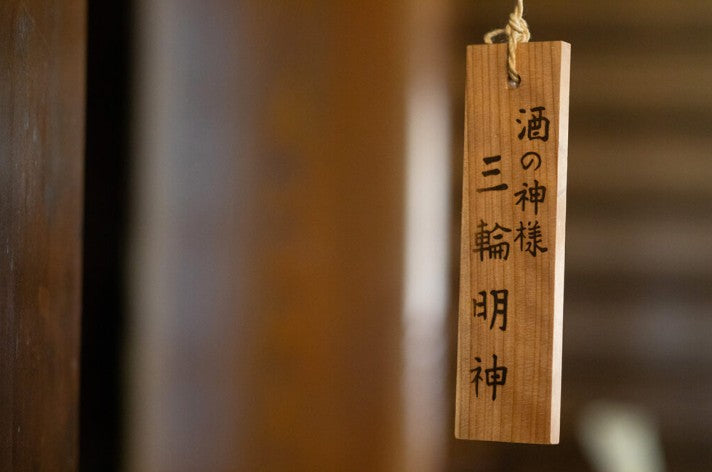 酒の神様
三輪明神